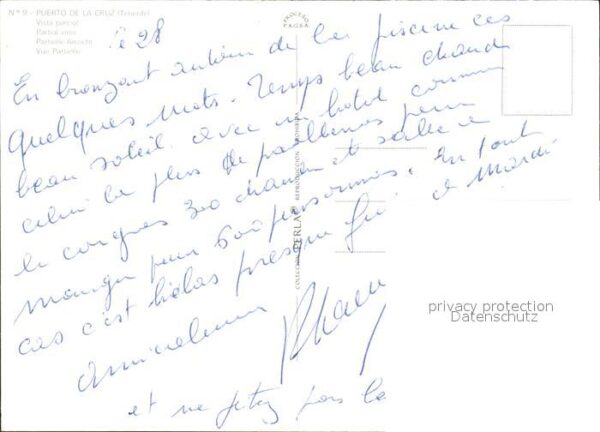 Nº 9 - PUERTO DE LA CRUZ (Tenerife)
Vista parcial
Partial view
Partielle Ansicht
Vue Partielle
le 28
En bronzant autour de la piscine ces
quelques mots. Temps beau chaud
beau soleil avec un hotel comme
celui la plus de problemes pour
le congres 300 chambres et salle a
manger pour 600 personnes. En tout
cas c'est helas presque fini a Mardi
Amicalement
et ne jetez pas la
COLECCION PERLA
REPRODUCCION PROHIBIDA
privacy protection
Datenschutz